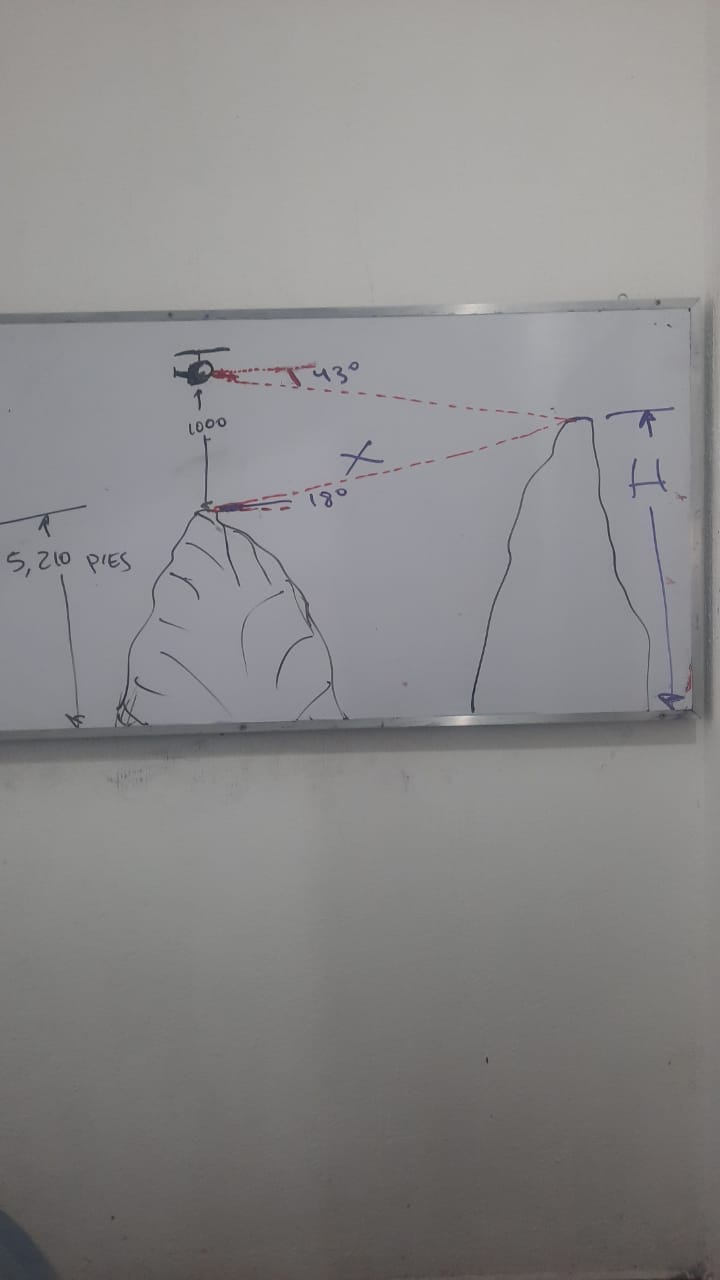 43°
1000
X
18°
H
5,210 PIES